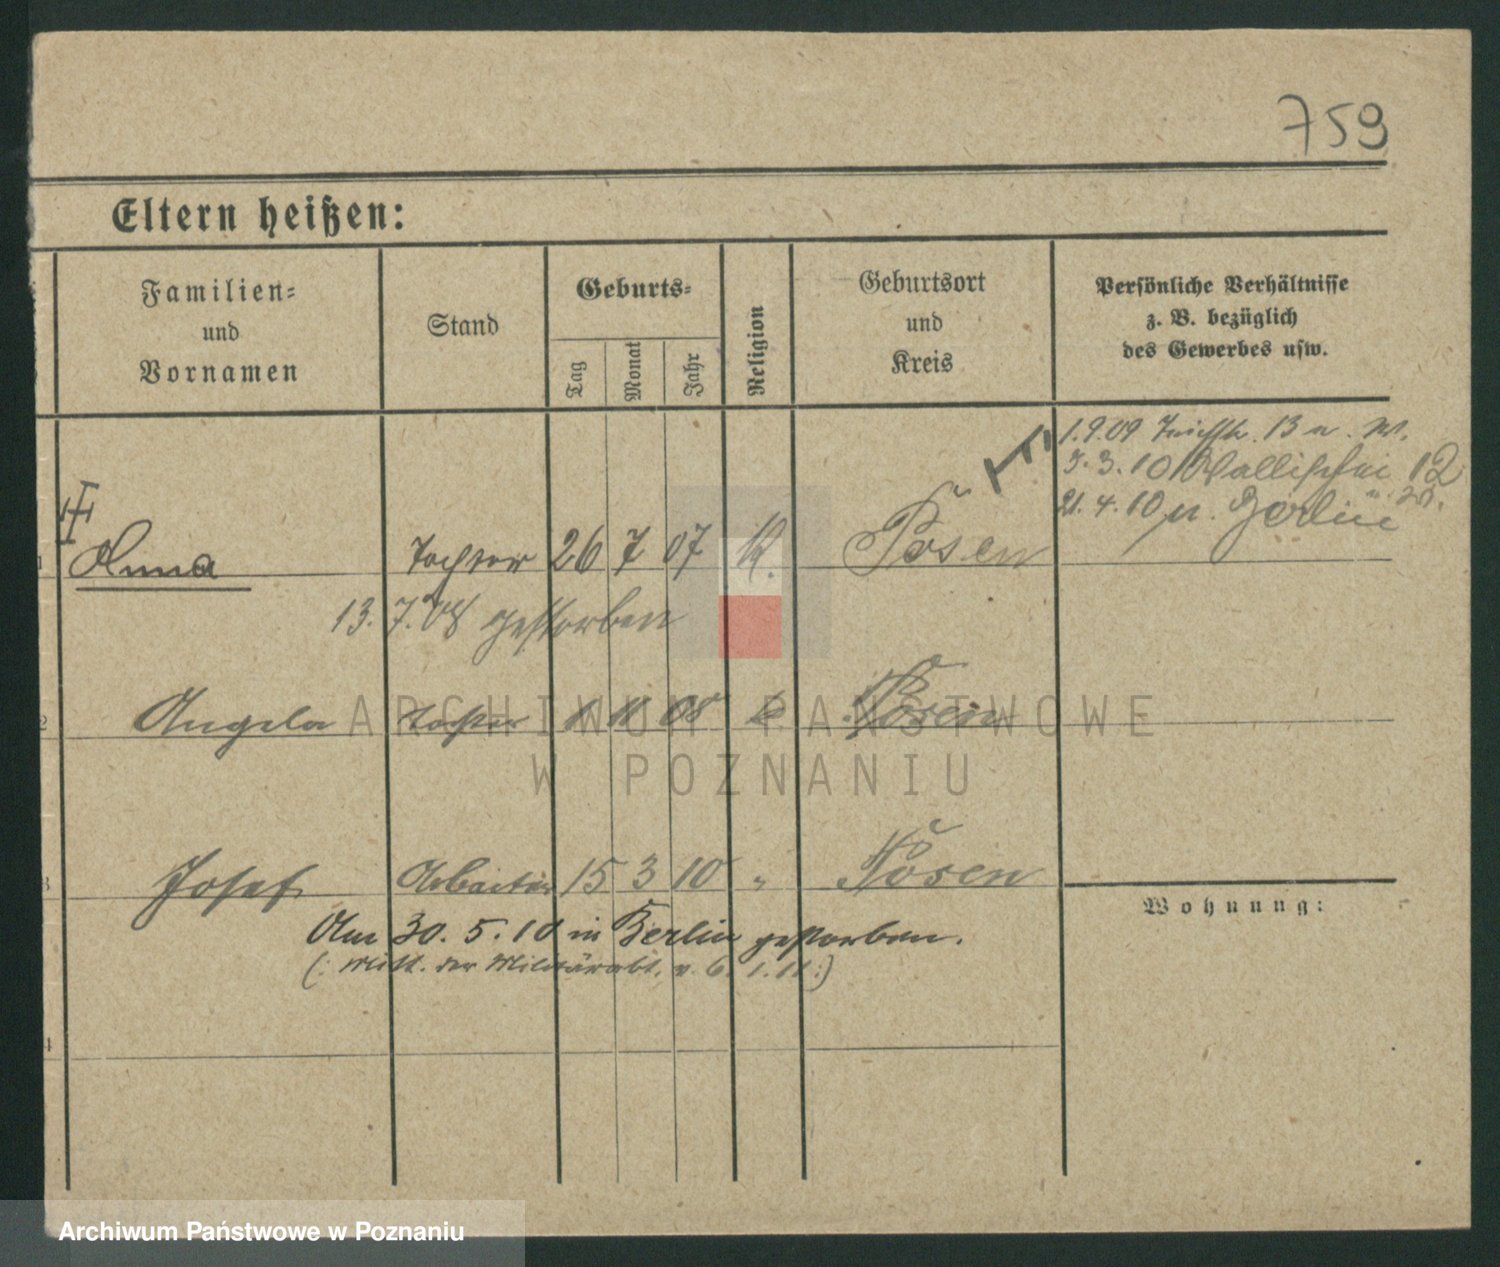 759
Eltern heißen:
Familien=
und
Vornamen
Stand
Geburts=
Tag
Monat
Jahr
Religion
Geburtsort
und
Kreis
Persönliche Verhältnisse
z. B. bezüglich
des Gewerbes usw.
1.9.09 13 u. W.
3.3.10 Wallischei 12
u. W.
21.4.10 n. Berlin
1 Anna Tochter 26 7 07 K. Posen
13.7.08 gestorben
2 Angela Tochter 11 08 k Posen
3 Josef Arbeiter 15 3 10 " Posen
Wohnung:
Am 30.5.10 in Berlin gestorben.
(: Mitt. der Militärabt. v. 6.1.11 :)
4
ARCHIWUM PAŃSTWOWE
W POZNANIU
Archiwum Państwowe w Poznaniu